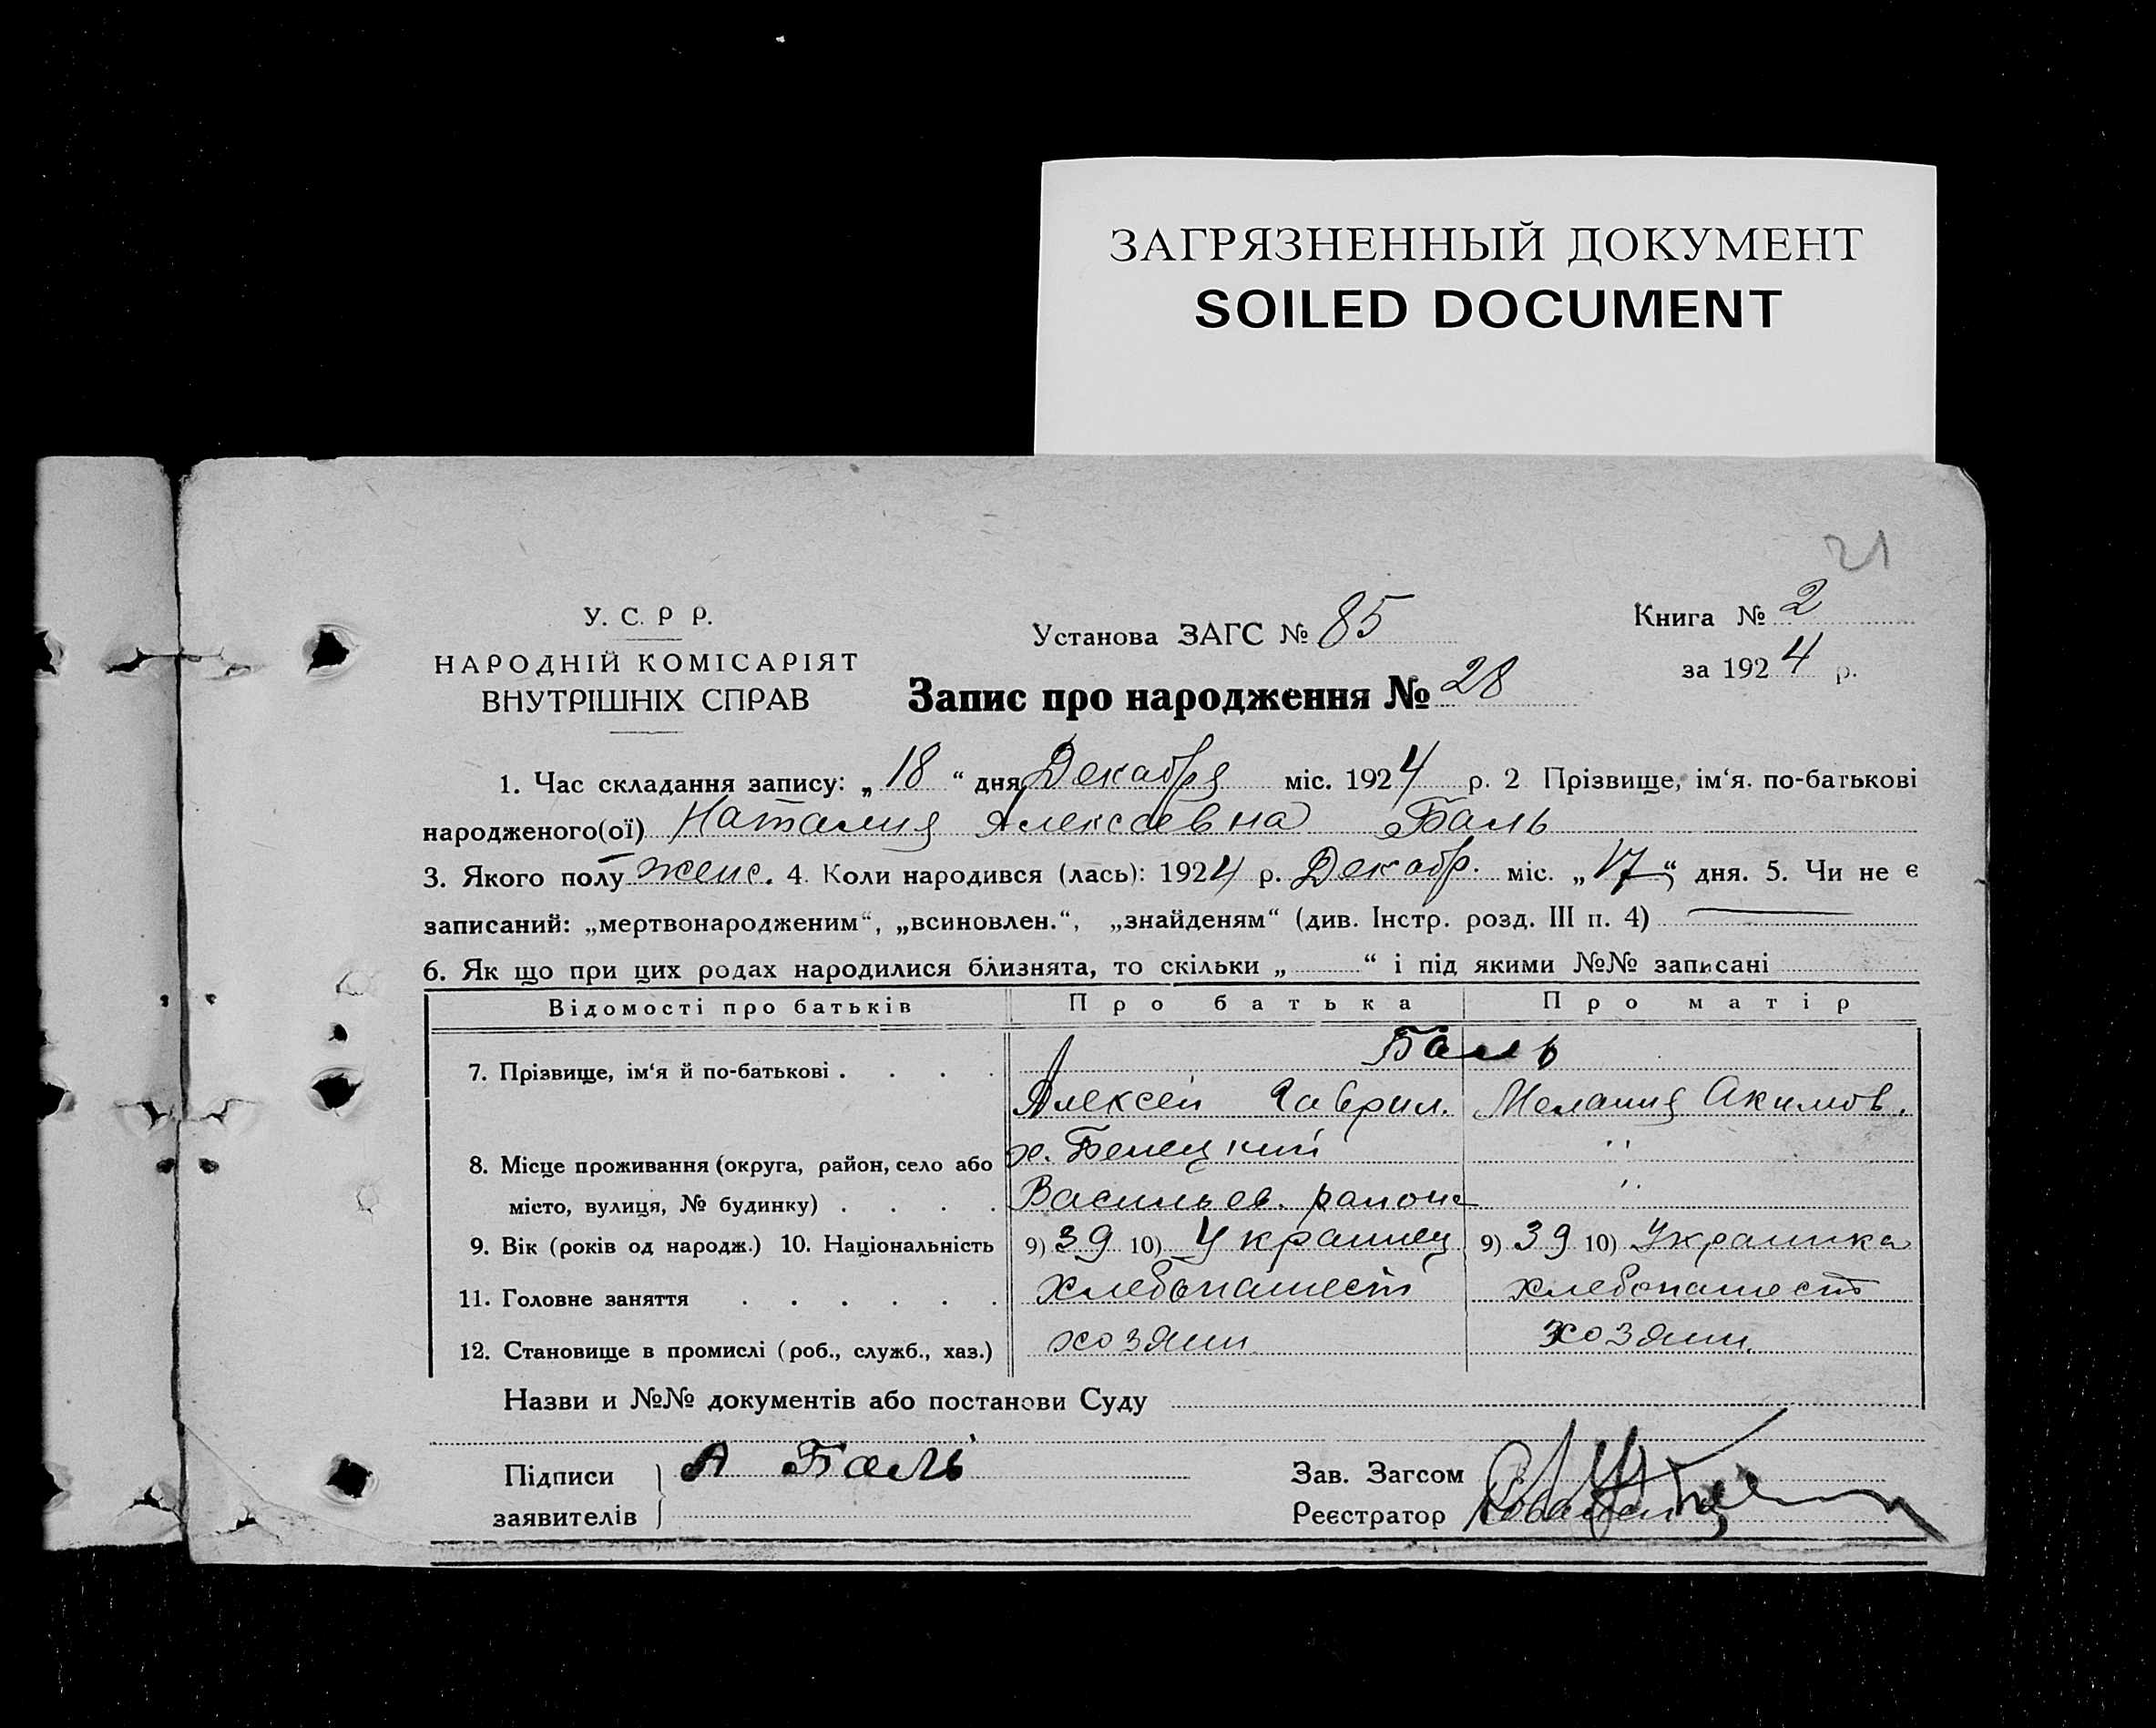 ЗАГРЯЗНЕННЫЙ ДОКУМЕНТ
SOILED DOCUMENT
21
У. С. Р Р.
НАРОДНІЙ КОМІСАРІЯТ
ВНУТРІШНІХ СПРАВ
Установа ЗАГС № 85
Книга № 2
за 1924 р.
Запис про народження № 28
1. Час складання запису: „ 18 “ дня Декабря міс. 1924 р. 2 Прізвище, ім‘я, по-батькові
народженого(ої) Наталия Алексаевна Баль
3. Якого полу женс. 4. Коли народився (лась): 1924 р. Декабр. міс. „ 17 “ дня. 5. Чи не є
записаний: „мертвонародженим“, „всиновлен.“, „знайденям“ (див. Інстр. розд. III п. 4)
6. Як що при цих родах народилися близнята, то скільки „ “ і під якими №№ записані
Відомості про батьків Про батька Про матір
Баль
7. Прізвище, ім‘я й по-батькові . . . .
Алексей Гаврил. Мелания Акимов.
8. Місце проживання (округа, район, село або х. "
місто, вулиця, № будинку) . . . . Васильев. района "
9. Вік (років од народж.) 10. Національність 9) 39 10) Украинец 9) 39 10) Украинка
11. Головне заняття . . . . . . хлебопашест хлебопашест
12. Становище в промислі (роб., служб., хаз.) хозяин хозяин.
Назви и №№ документів або постанови Суду
Підписи А Баль Зав. Загсом
заявителів Реєстратор